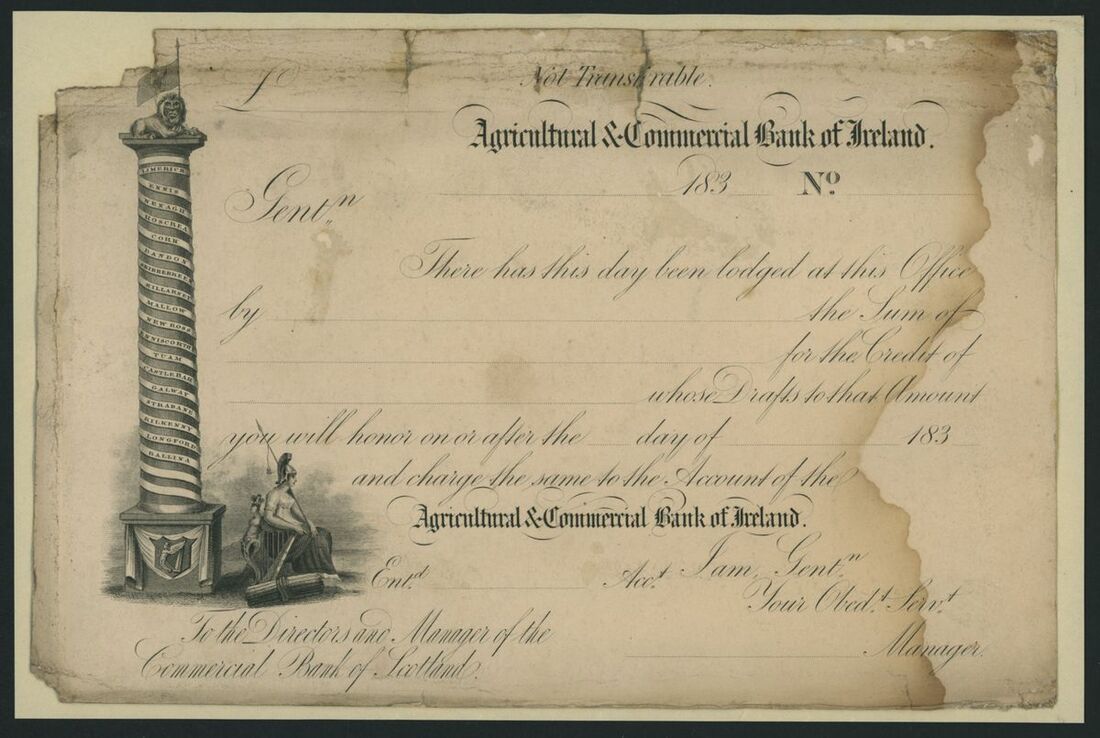 £
Not Transferable.
Agricultural & Commercial Bank of Ireland.
183 No.
Gentn
There has this day been lodged at this Office
by the Sum of
for the Credit of
whose Drafts to that Amount
you will honor on or after the day of 183
and charge the same to the Account of the
Agricultural & Commercial Bank of Ireland.
Entd Acct I am, Gentn
Your Obedt Servt
Manager.
To the Directors and Manager of the
Commercial Bank of Scotland.
LIMERICK
ENNIS
NENAGH
ROSCREA
CORK
BANDON
SKIBBEREEN
KILLARNEY
MALLOW
NEW ROSS
ENNISCORTHY
TUAM
CASTLEBAR
GALWAY
STRABANE
KILKENNY
LONGFORD
BALLINA